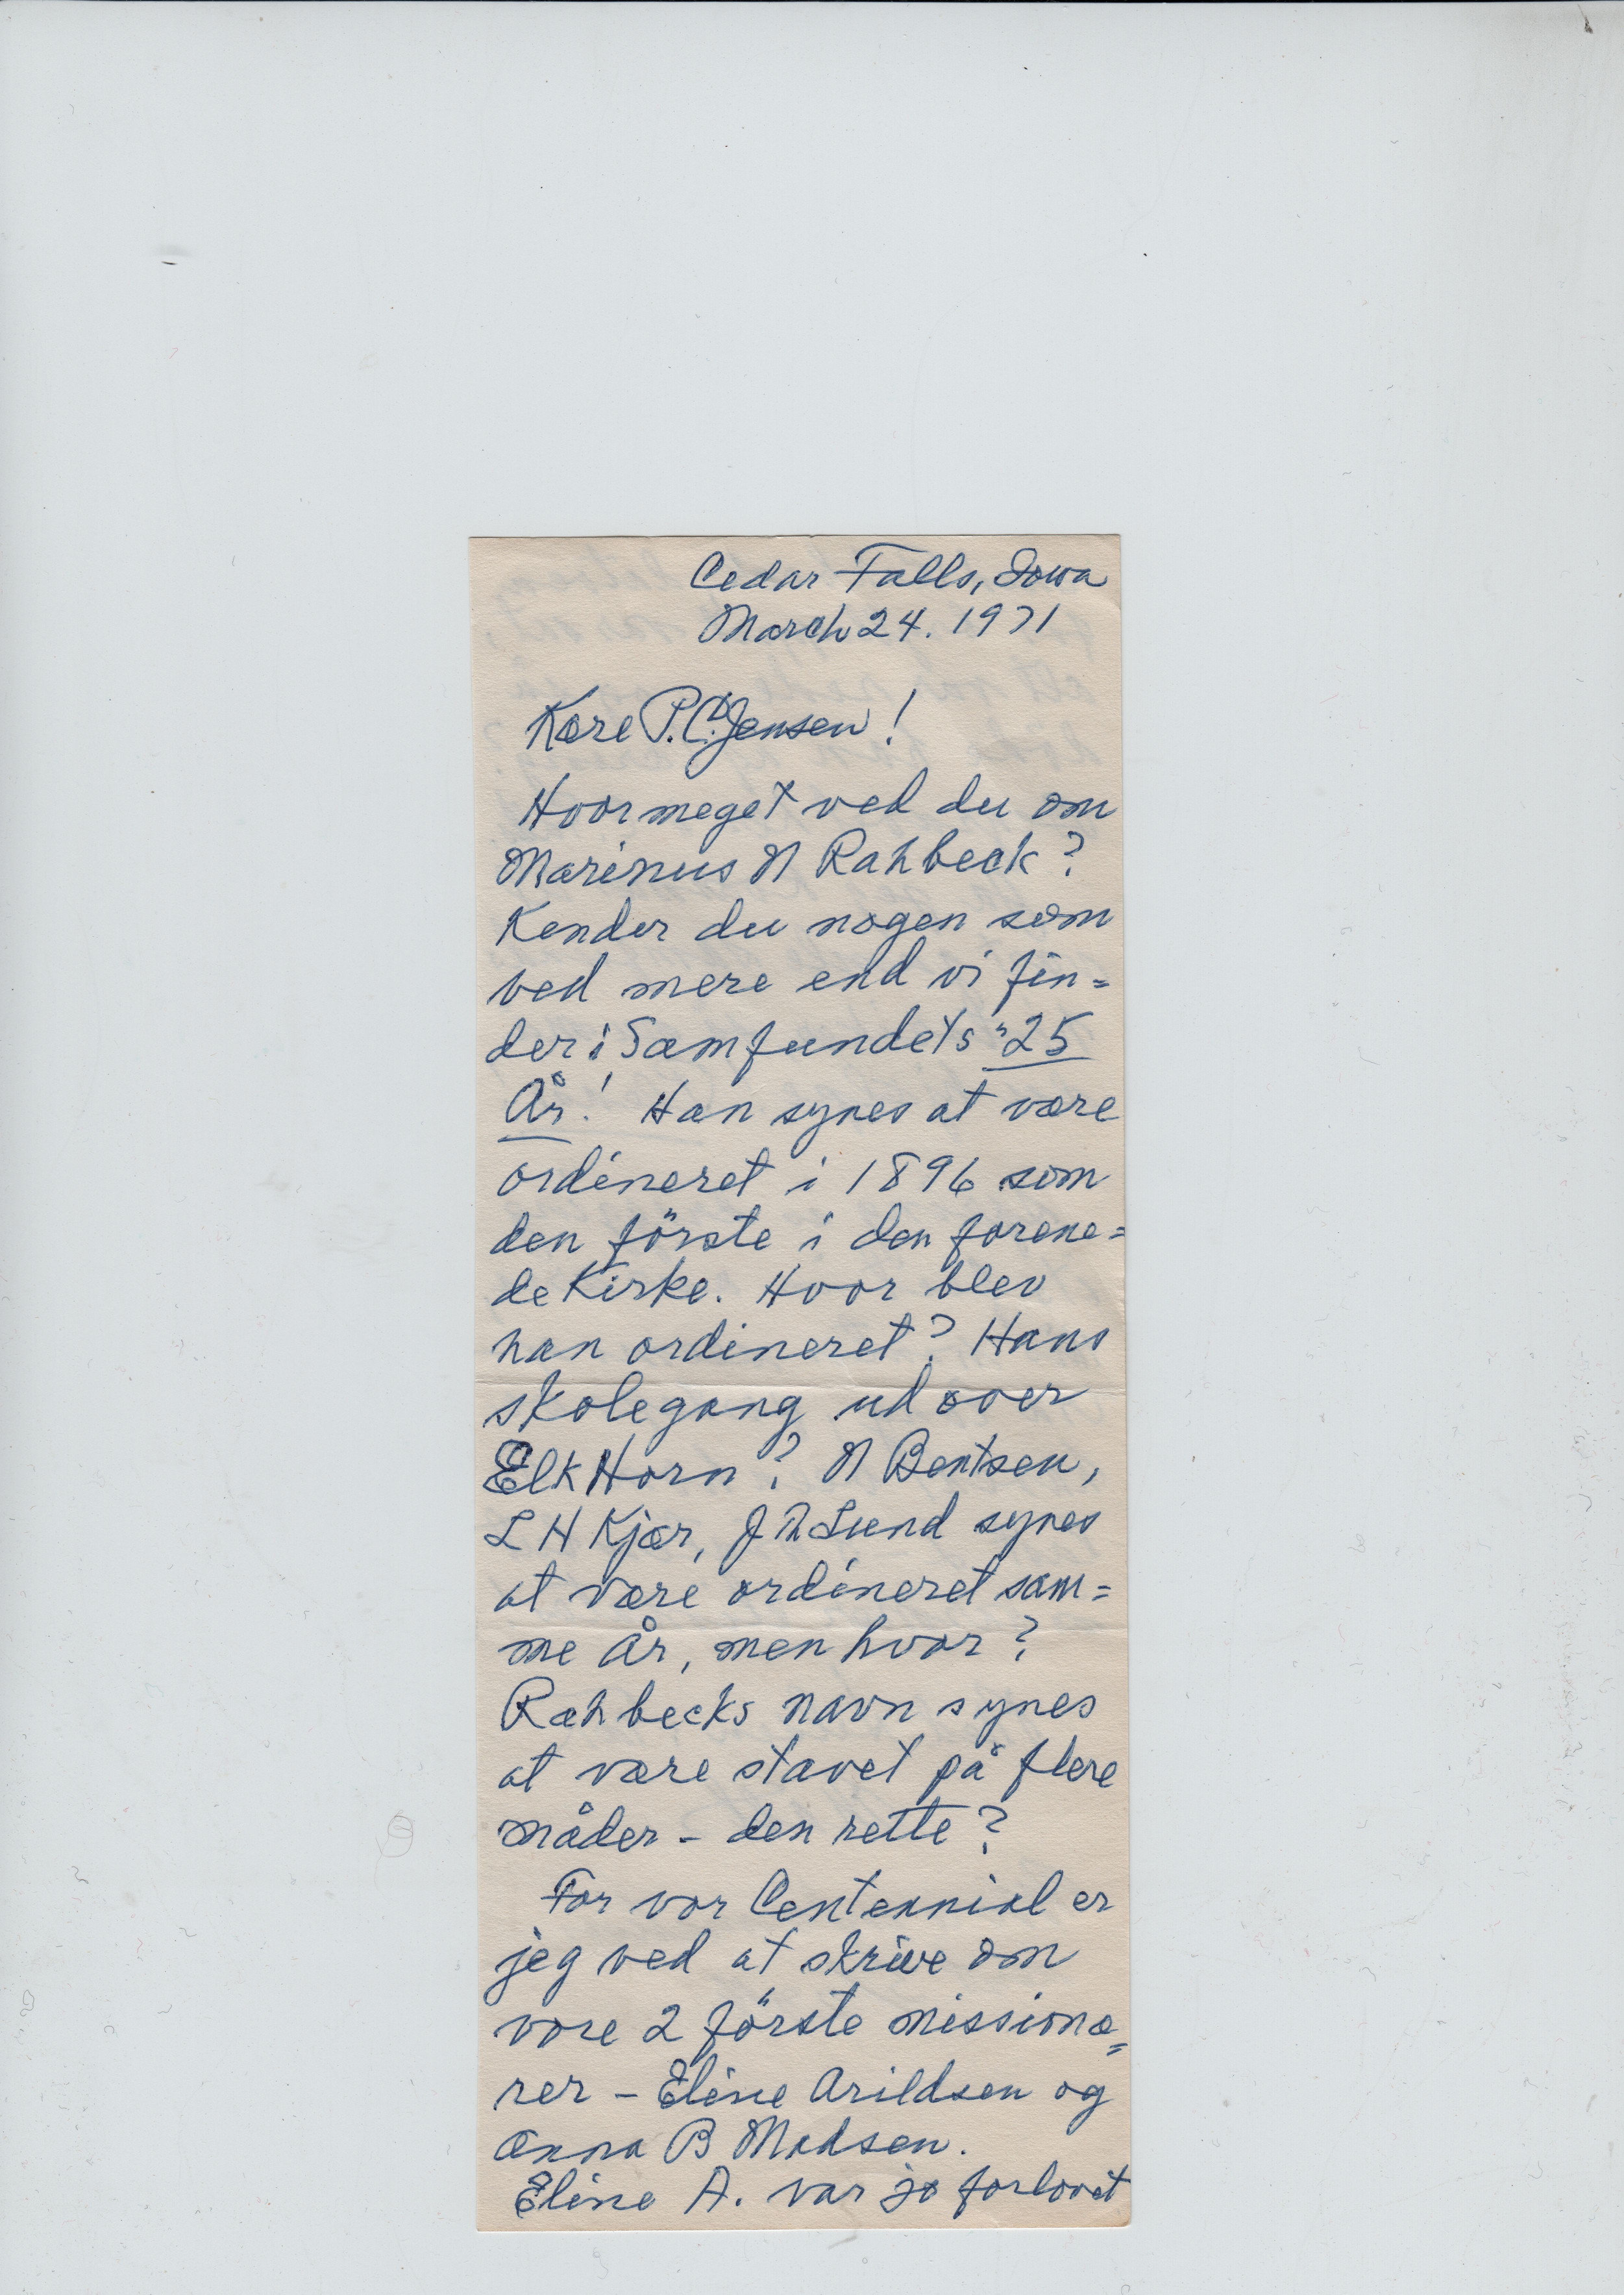 Cedar Falls, Iowa
March 24. 1971
Kære P.C. Jensen!
Hvor meget ved du om
Marinus N Rahbeck?
Kender du nogen som
ved mere end vi fin=
der i Samfundets "25
År! Han synes at være
ordineret i 1896 som
den förste i den forene=
de Kirke. Hvor blev
han ordineret? Hans
skolegang ud over
Elk Horn? N Bentsen,
L H Kjær, J R Lund synes
at være ordineret sam=
me år, men hvor?
Rahbecks navn synes
at være stavet på flere
måder - den rette?
For vor Centennial er
jeg ved at skrive om
vore 2 förste missionæ=
rer - Eline Arildsen og
Anna B Madsen.
Eline A. var jo forlovet